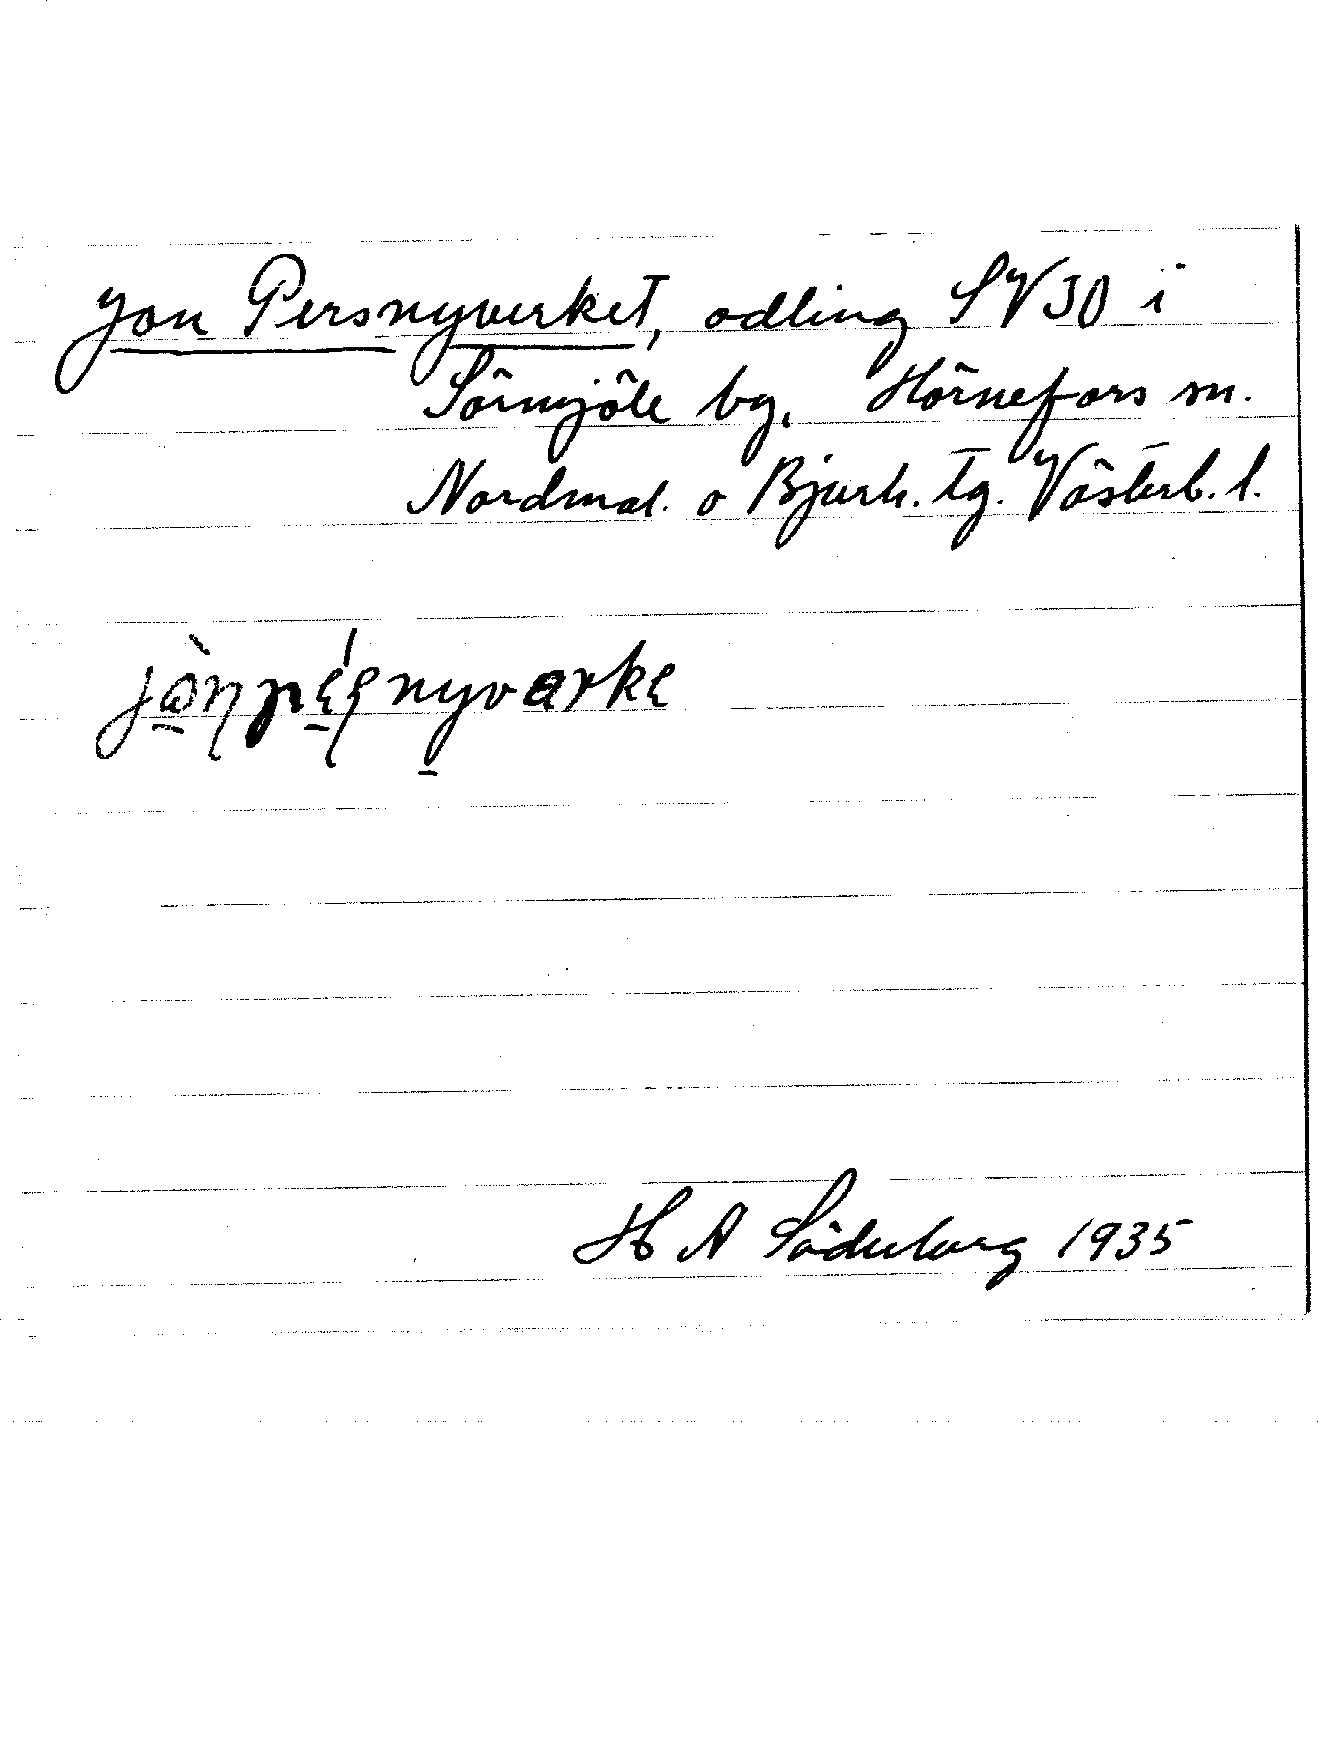 Jon Persnyverket, odling SV30 i
Sörmjöle by, Hörnefors sn.
Nordmal. o Bjurh. tg. Västerb. l.
jɷ̀ɳpɛ́ʂnyvarkɛ
H A Söderberg 1935